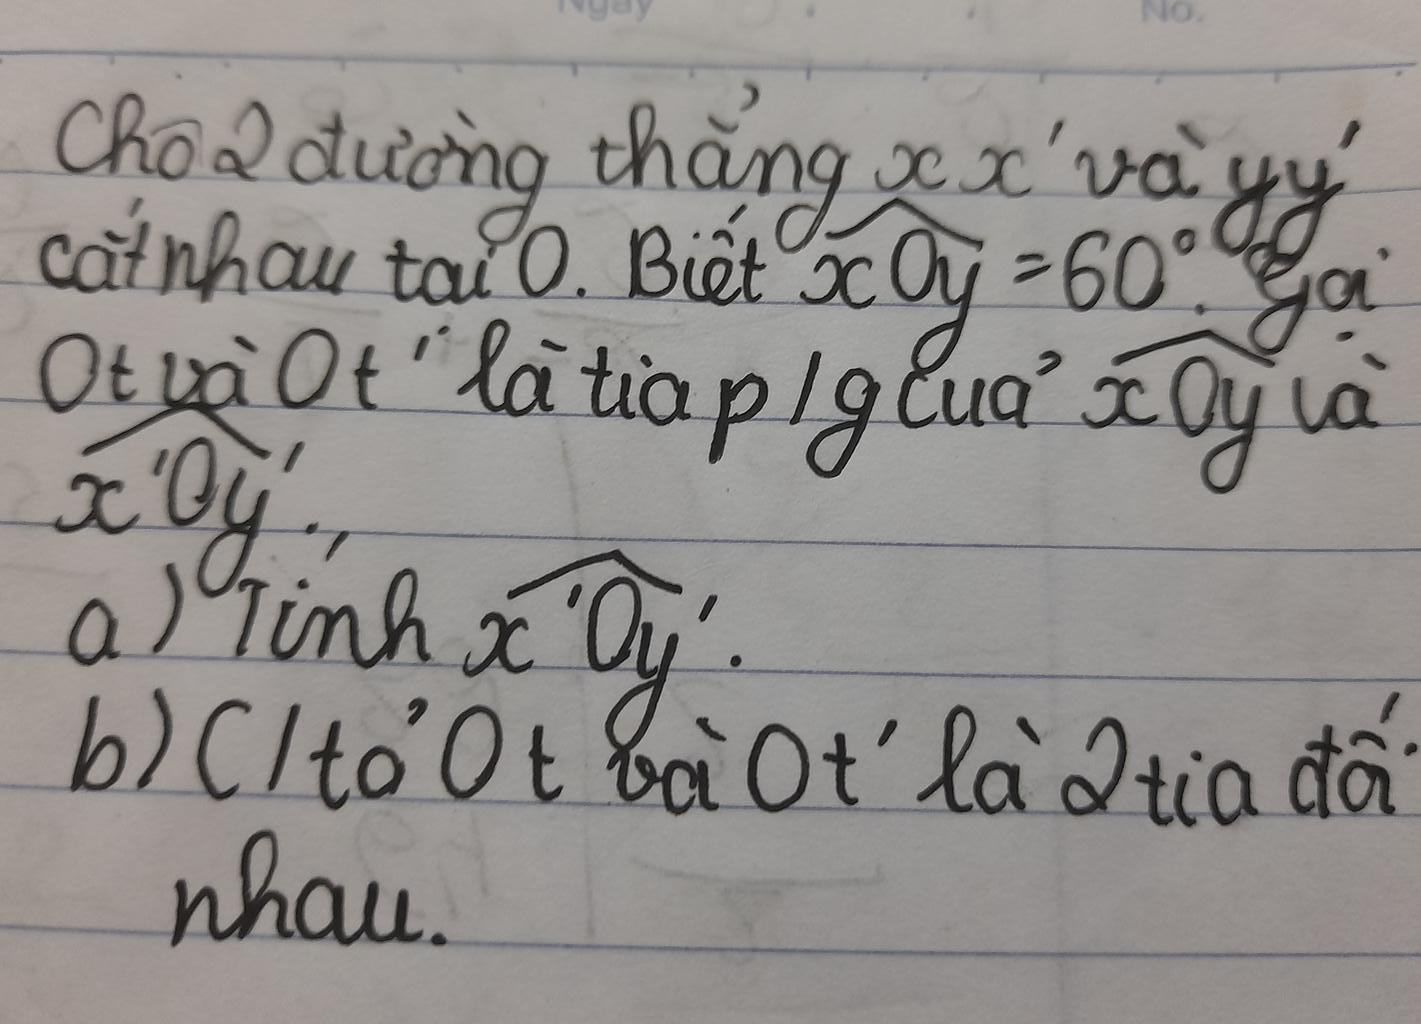 Ngày No.
Cho 2 đường thẳng xx' và yy'
cắt nhau tại O. Biết xOy = 60°. Gọi
Ot và Ot' là tia p/g của xOy và
x'Oy'.
a) Tính x'Oy'.
b) C/tỏ Ot và Ot' là 2 tia đối
nhau.